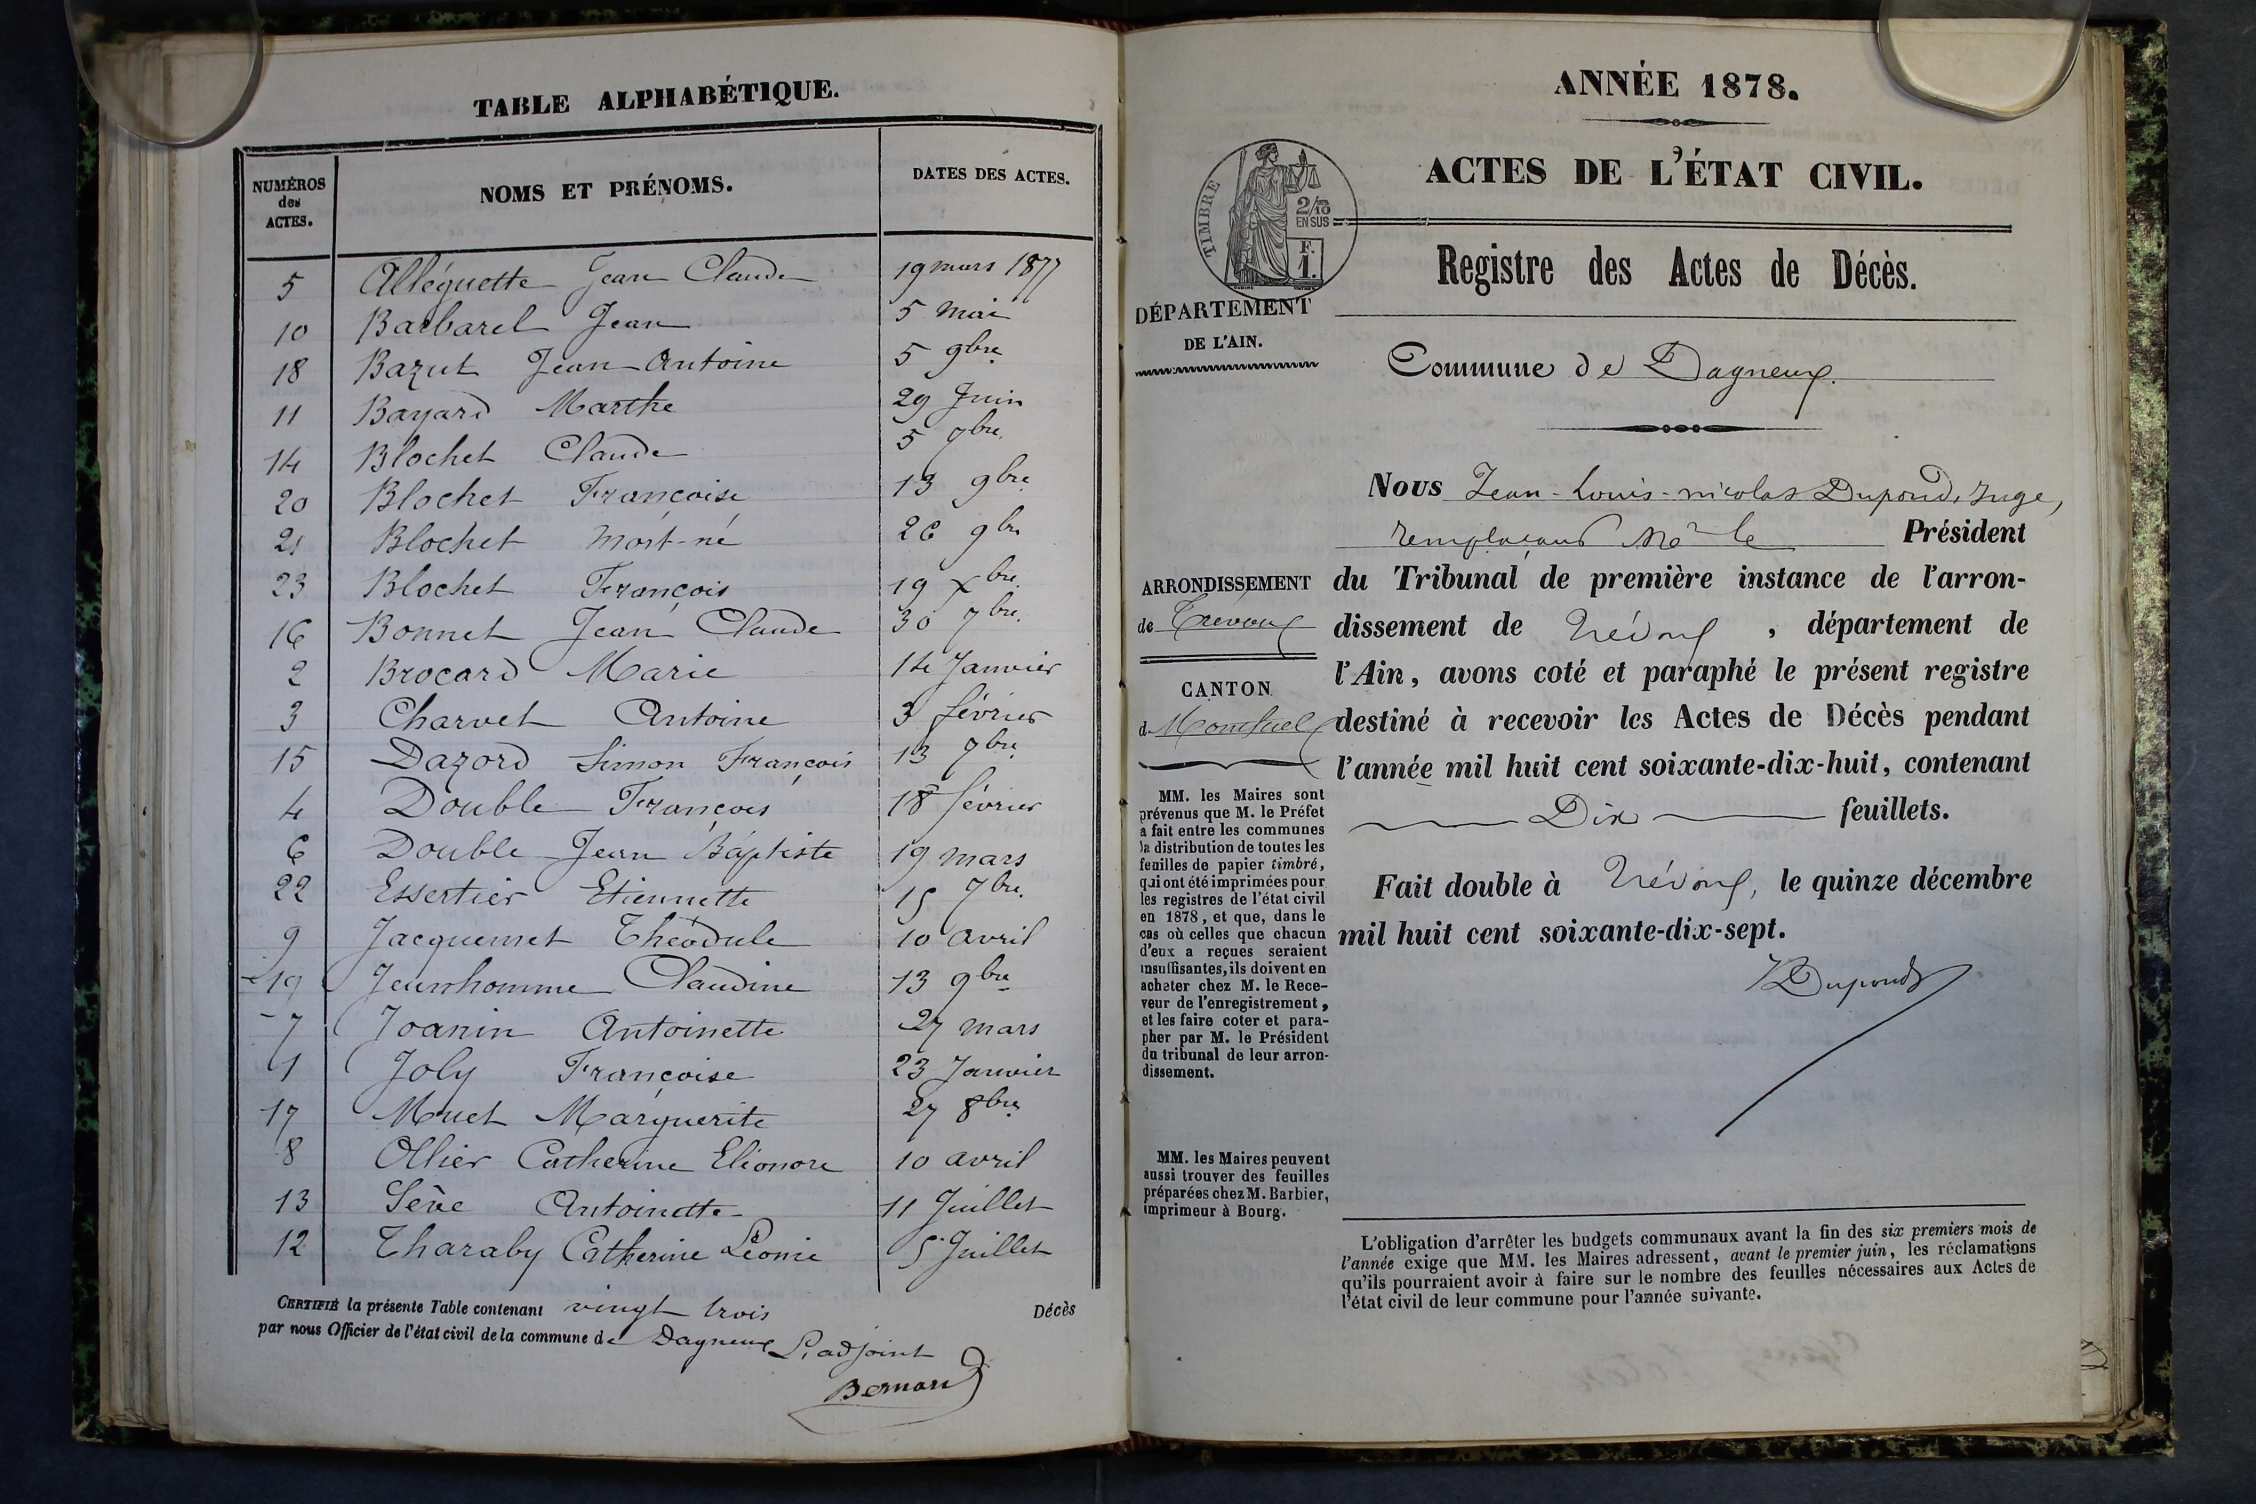 TABLE ALPHABÉTIQUE.
NUMÉROS des ACTES. NOMS ET PRÉNOMS. DATES DES ACTES.
5 Alléguette Jean Claude 19 mars 1877
10 Barbarel Jean 5 mai
18 Bazut Jean Antoine 5 9bre
11 Bayard Marthe 29 Juin
14 Blochet Claude 5 7bre
20 Blochet Françoise 13 9bre
21 Blochet Mort-né 26 9bre
23 Blochet François 19 Xbre
16 Bonnet Jean Claude 30 7bre
2 Brocard Marie 14 Janvier
3 Charvet Antoine 3 février
15 Dazord Simon François 13 7bre
4 Double François 18 février
6 Double Jean Baptiste 19 mars
22 Essertier Etiennette 15 7bre
9 Jacquemet Théodule 10 avril
19 Jeunhomme Claudine 13 9bre
7 Joanin Antoinette 27 mars
1 Joly Françoise 23 Janvier
17 Muet Marguerite 27 8bre
8 Ollier Catherine Eléonore 10 avril
13 Sève Antoinette 11 Juillet
12 Tharaby Catherine Léonie 5 Juillet
CERTIFIÉ la présente Table contenant vingt trois Décès
par nous Officier de l'état civil de la commune de Dagneux L'adjoint
Bernard
ANNÉE 1878.
ACTES DE L'ÉTAT CIVIL.
TIMBRE
2/10
EN SUS
F.
1.
Registre des Actes de Décès.
DÉPARTEMENT
DE L'AIN.
Commune de Dagneux.
Nous Jean-Louis-nicolas Dupond, Juge,
remplaçant Mr le Président
du Tribunal de première instance de l'arron-
dissement de Trévoux, département de
l'Ain, avons coté et paraphé le présent registre
destiné à recevoir les Actes de Décès pendant
l'année mil huit cent soixante-dix-huit, contenant
Dix feuillets.
Fait double à Trévoux, le quinze décembre
mil huit cent soixante-dix-sept.
Dupond
ARRONDISSEMENT
de Trévoux
CANTON
d Montluel
MM. les Maires sont
prévenus que M. le Préfet
a fait entre les communes
la distribution de toutes les
feuilles de papier timbré,
qui ont été imprimées pour
les registres de l'état civil
en 1878, et que, dans le
cas où celles que chacun
d'eux a reçues seraient
insuffisantes, ils doivent en
acheter chez M. le Rece-
veur de l'enregistrement,
et les faire coter et para-
pher par M. le Président
du tribunal de leur arron-
dissement.
MM. les Maires peuvent
aussi trouver des feuilles
préparées chez M. Barbier,
imprimeur à Bourg.
L'obligation d'arrêter les budgets communaux avant la fin des six premiers mois de
l'année exige que MM. les Maires adressent, avant le premier juin, les réclamations
qu'ils pourraient avoir à faire sur le nombre des feuilles nécessaires aux Actes de
l'état civil de leur commune pour l'année suivante.